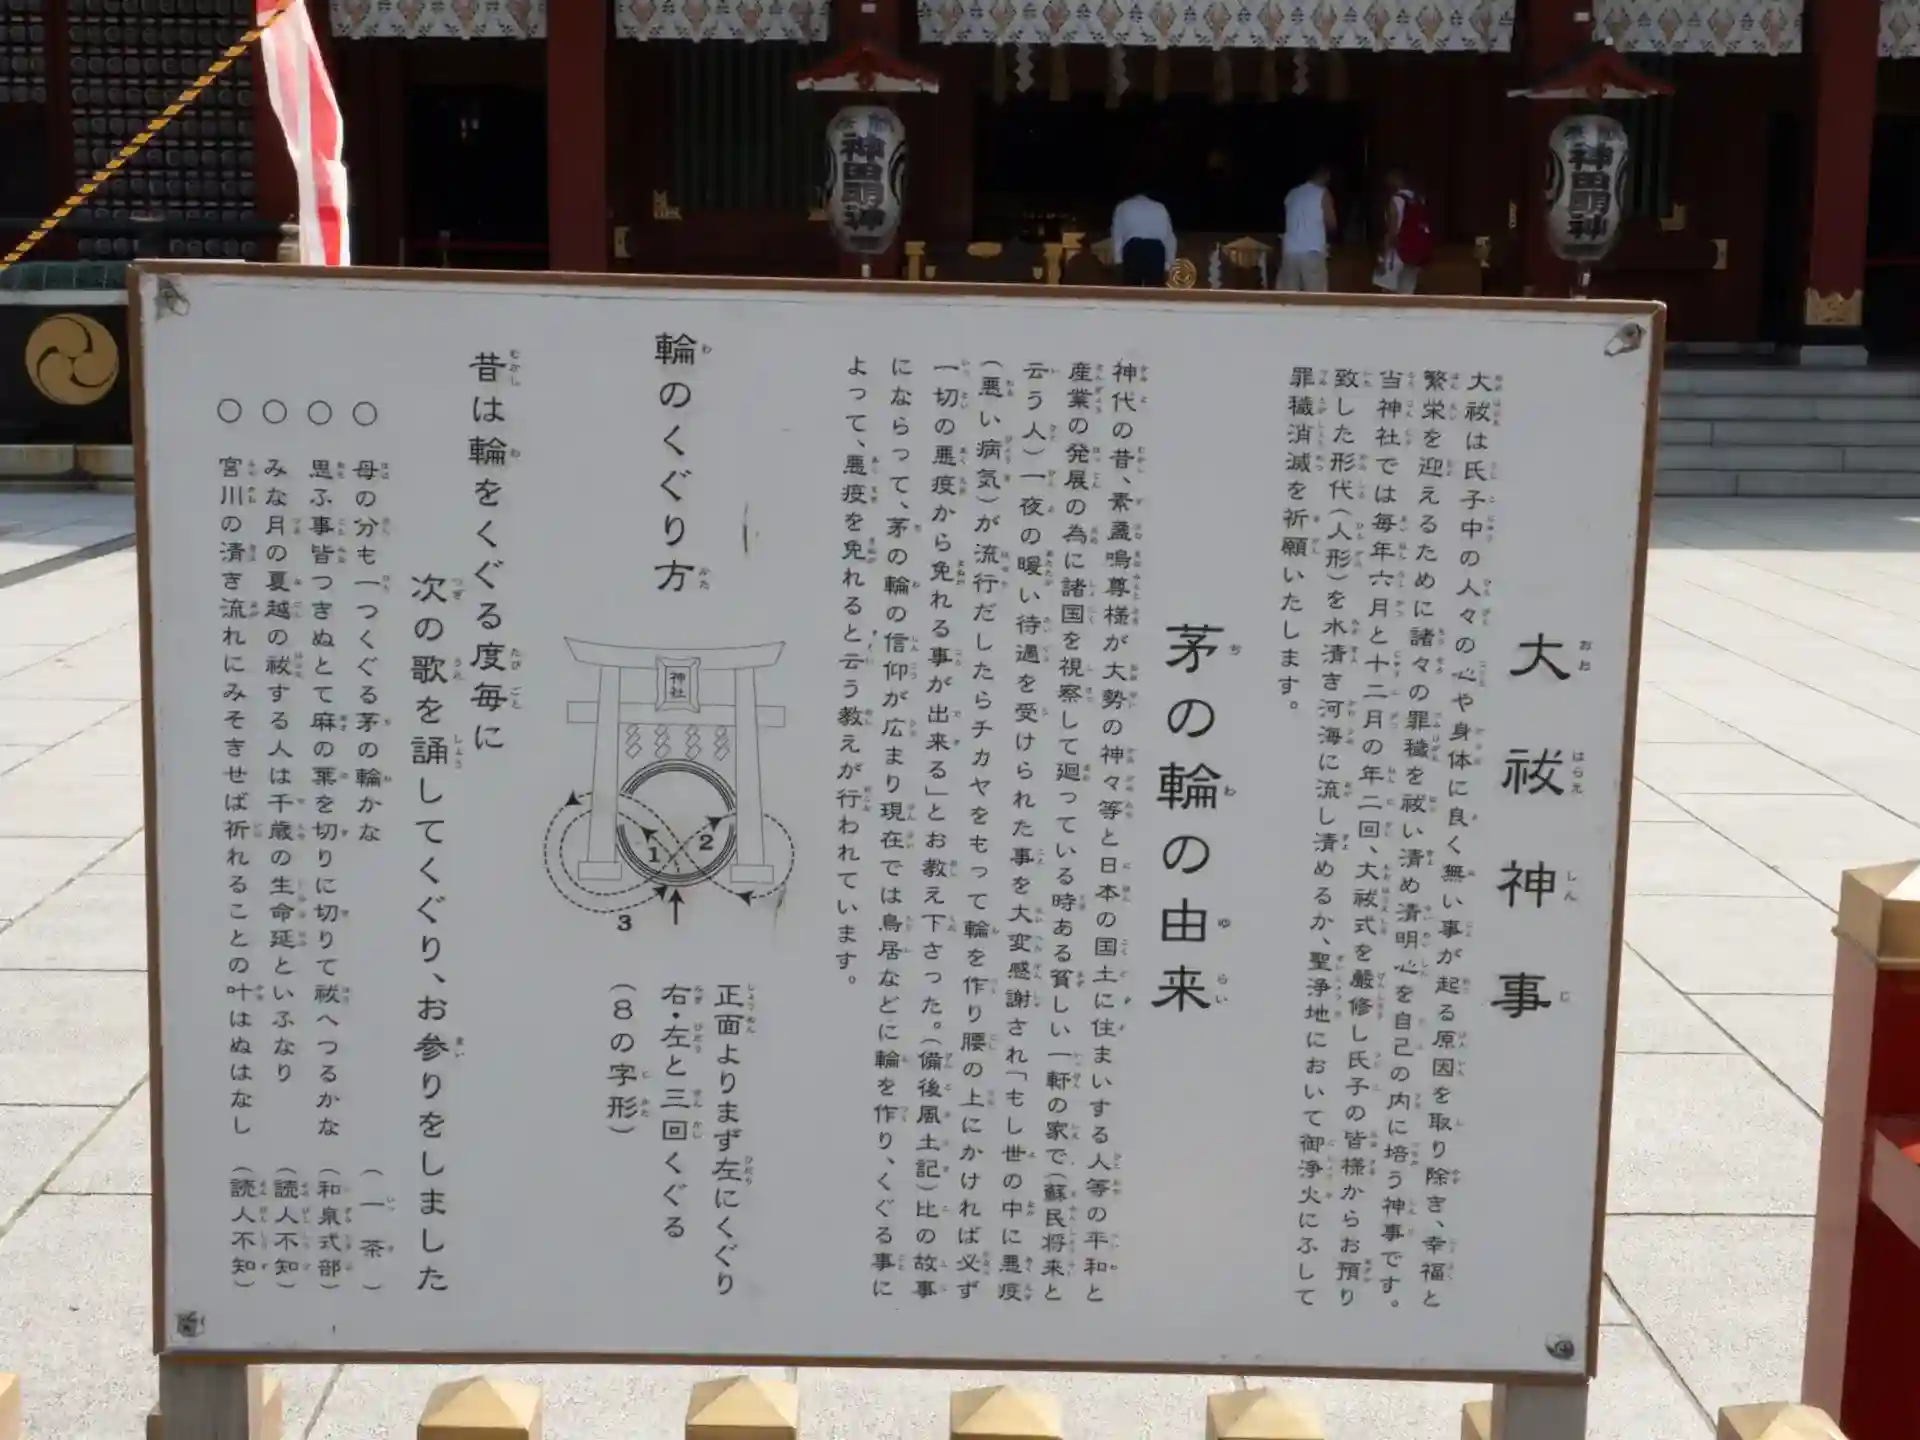 神田明神
神田明神
大祓神事
大祓は氏子中の人々の心や身体に良く無い事が起る原因を取り除き、幸福と
繁栄を迎えるために諸々の罪穢を祓い清め清明心を自己の内に培う神事です。
当神社では毎年六月と十二月の年二回、大祓式を厳修し氏子の皆様からお預り
致した形代(人形)を水清き河海に流し清めるか、聖浄地において御浄火にふして
罪穢消滅を祈願いたします。
茅の輪の由来
神代の昔、素盞鳴尊様が大勢の神々等と日本の国土に住まいする人等の平和と
産業の発展の為に諸国を視察して廻っている時ある貧しい一軒の家で(蘇民将来と
云う人)一夜の暖い待遇を受けられた事を大変感謝され「もし世の中に悪疫
(悪い病気)が流行だしたらチカヤをもって輪を作り腰の上にかければ必ず
一切の悪疫から免れる事が出来る」とお教え下さった。(備後風土記)比の故事
にならって、茅の輪の信仰が広まり現在では鳥居などに輪を作り、くぐる事に
よって、悪疫を免れると云う教えが行われています。
輪のくぐり方
神社
1
2
3
正面よりまず左にくぐり
右・左と三回くぐる
(8の字形)
昔は輪をくぐる度毎に
次の歌を誦してくぐり、お参りをしました
○ 母の分も一つくぐる茅の輪かな (一茶)
○ 思ふ事皆つきぬとて麻の葉を切りに切りて祓へつるかな (和泉式部)
○ みな月の夏越の祓する人は千歳の生命延といふなり (読人不知)
○ 宮川の清き流れにみそきせば祈れることの叶はぬはなし (読人不知)